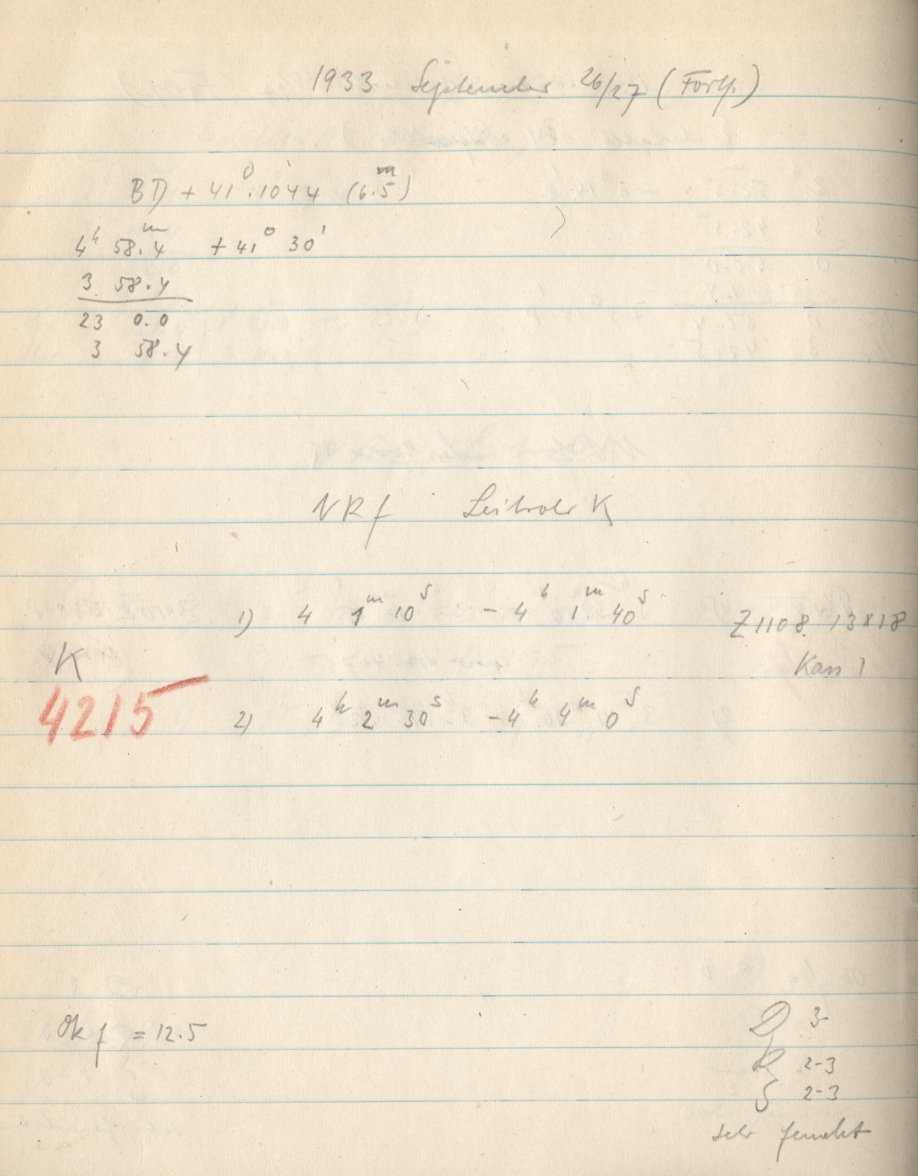 1933 September 26/27 (Forts.)
BD + 41°.1044 (6.5ᵐ)
4ʰ 58.4ᵐ + 41° 30'
3 58.4
23 0.0
3 58.4
NRf K
1) 4 1ᵐ 10ˢ - 4ʰ 1ᵐ 40ˢ Z1108. 13x18
K Kass 1
4215 2) 4ʰ 2ᵐ 30ˢ - 4ʰ 4ᵐ 0ˢ
Ok f = 12.5
D 3-
R 2-3
S 2-3
sehr feucht